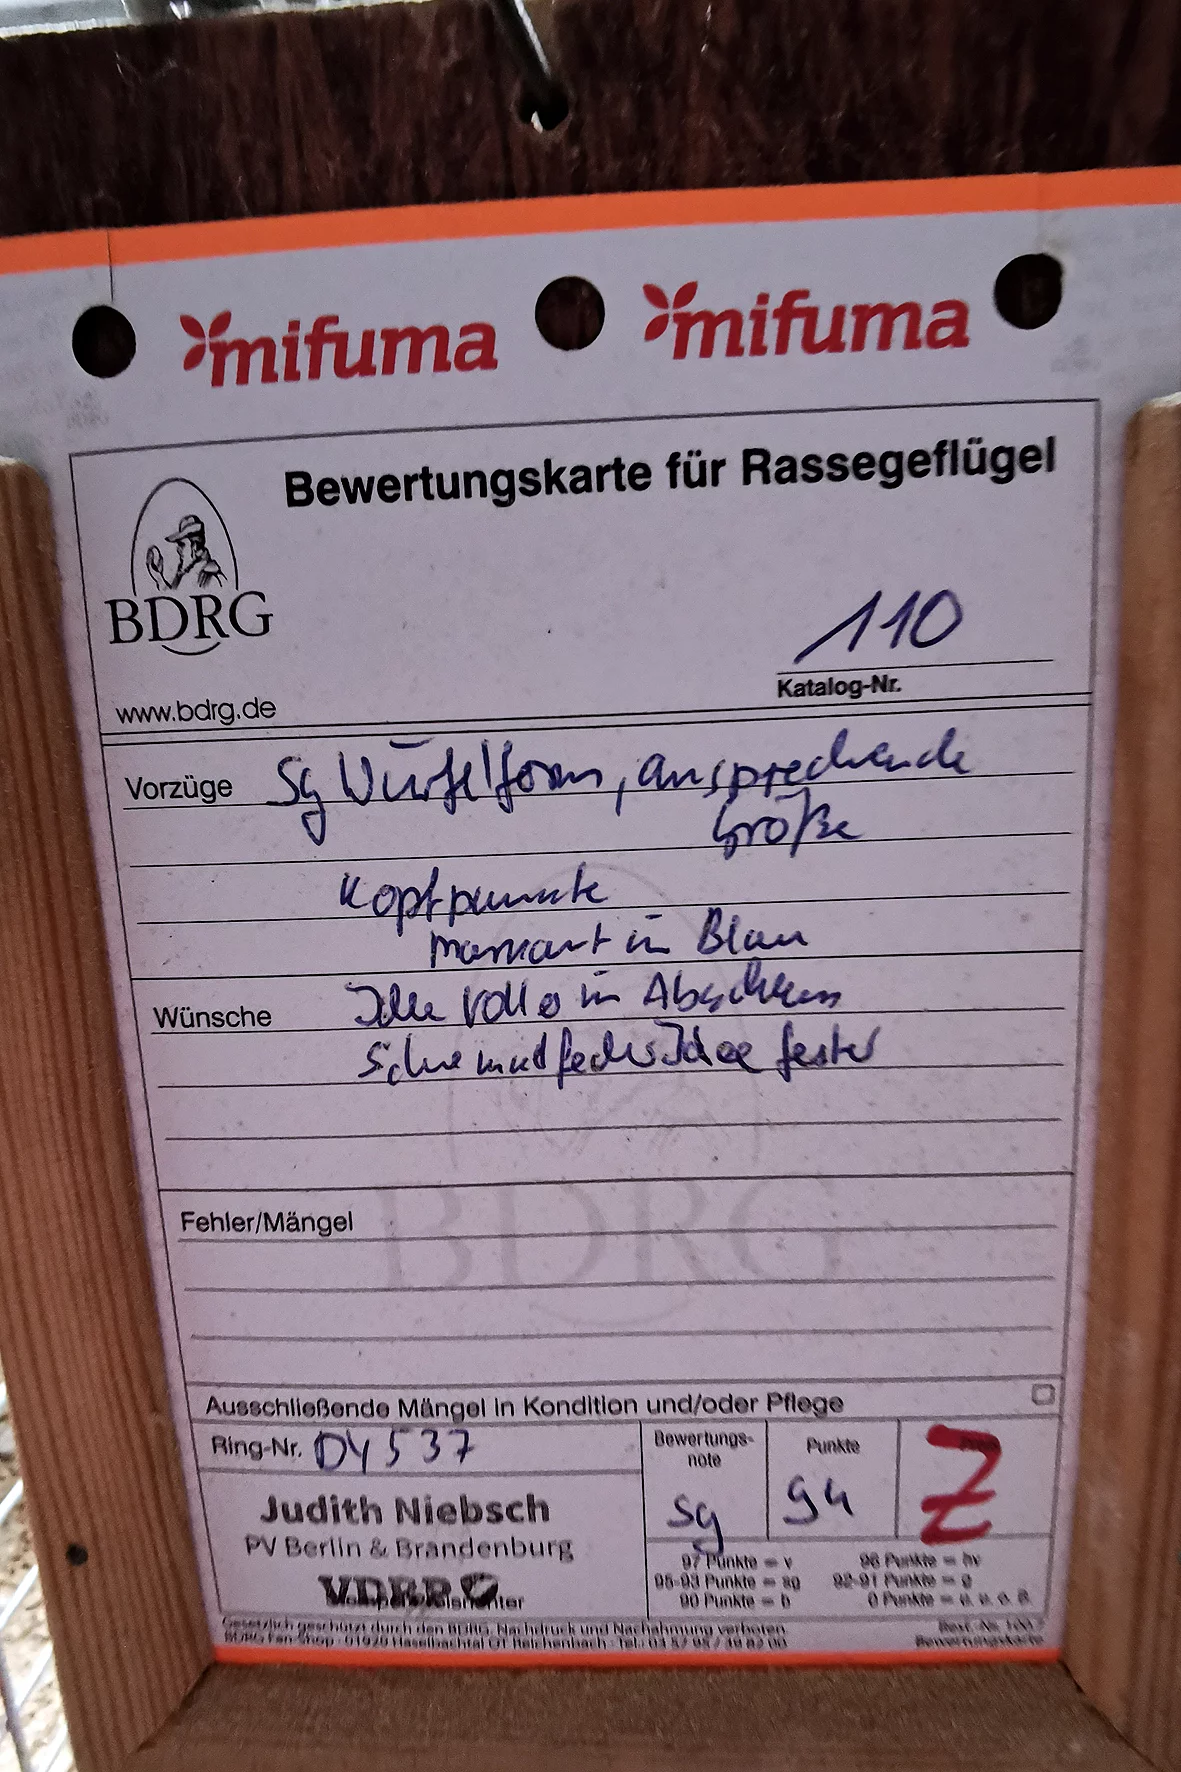 mifuma mifuma
Bewertungskarte für Rassegeflügel
BDRG
110
Katalog-Nr.
www.bdrg.de
Vorzüge Sg Würfelform, ansprechende
Größe
Kopfpunkte
markant in Blau
Wünsche Idee voller in
Schmuckfeder Idee fester
BDRG
Fehler/Mängel
Ausschließende Mängel in Kondition und/oder Pflege
Ring-Nr. DY 537
Bewertungs-
note
Punkte
sg 94 Z
Judith Niebsch
PV Berlin & Brandenburg
97 Punkte = v 96 Punkte = hv
95-93 Punkte = sg 92-91 Punkte = g
90 Punkte = b 0 Punkte = u. o. B.
Gesetzlich geschützt durch den BDRG, Nachdruck und Nachahmung verboten
BDRG Fan-Shop · 01920 Haselbachtal OT Reichenbach ·
Bewertungskarte